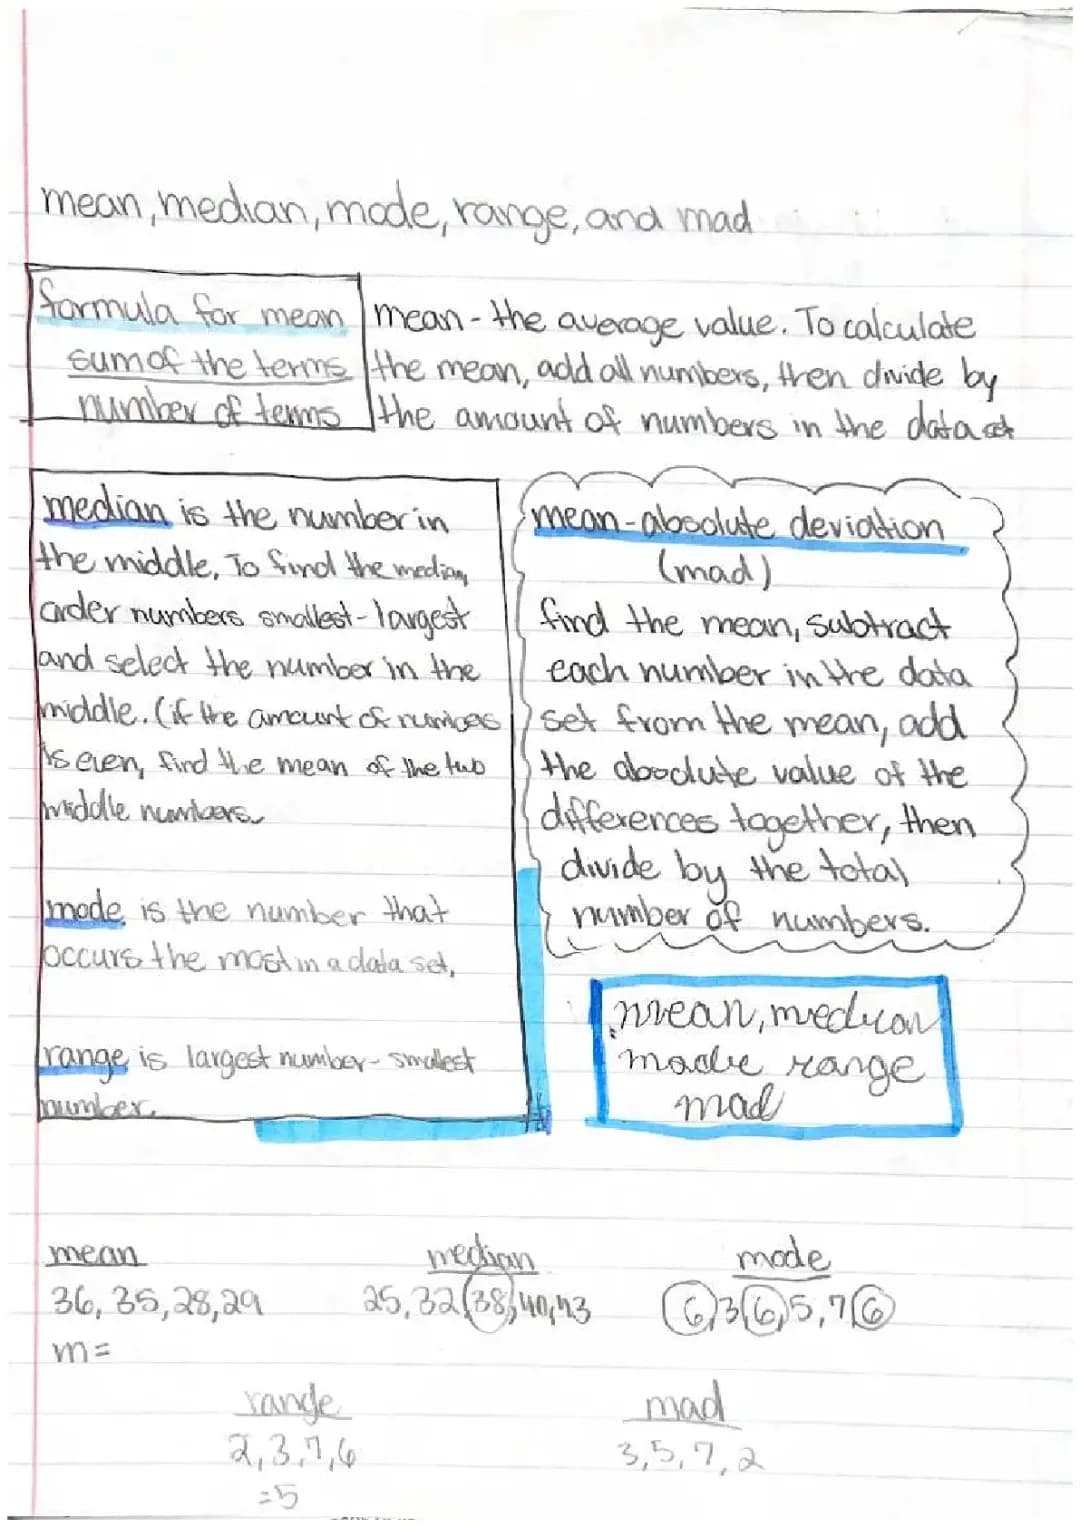 mean, median, mode, range, and mad
formula for mean
sum of the terms
number of terms
mean - the average value. To calculate
the mean, add all numbers, then divide by
the amount of numbers in the data set
median is the number in
the middle. To find the median,
order numbers smallest - largest
and select the number in the
middle. (if the amount of numbers
is even, find the mean of the two
middle numbers.
mode is the number that
occurs the most in a data set.
range is largest number - smallest
number.
mean-absolute deviation
(mad)
find the mean, subtract
each number in the data
set from the mean, add
the absolute value of the
differences together, then
divide by the total
number of numbers.
mean, median
mode range
mad
mean
36, 35, 28, 29
m=
median
25, 32, 38, 40, 43
mode
6, 3, 6, 5, 7, 6
range
2, 3, 7, 6
=5
mad
3, 5, 7, 2